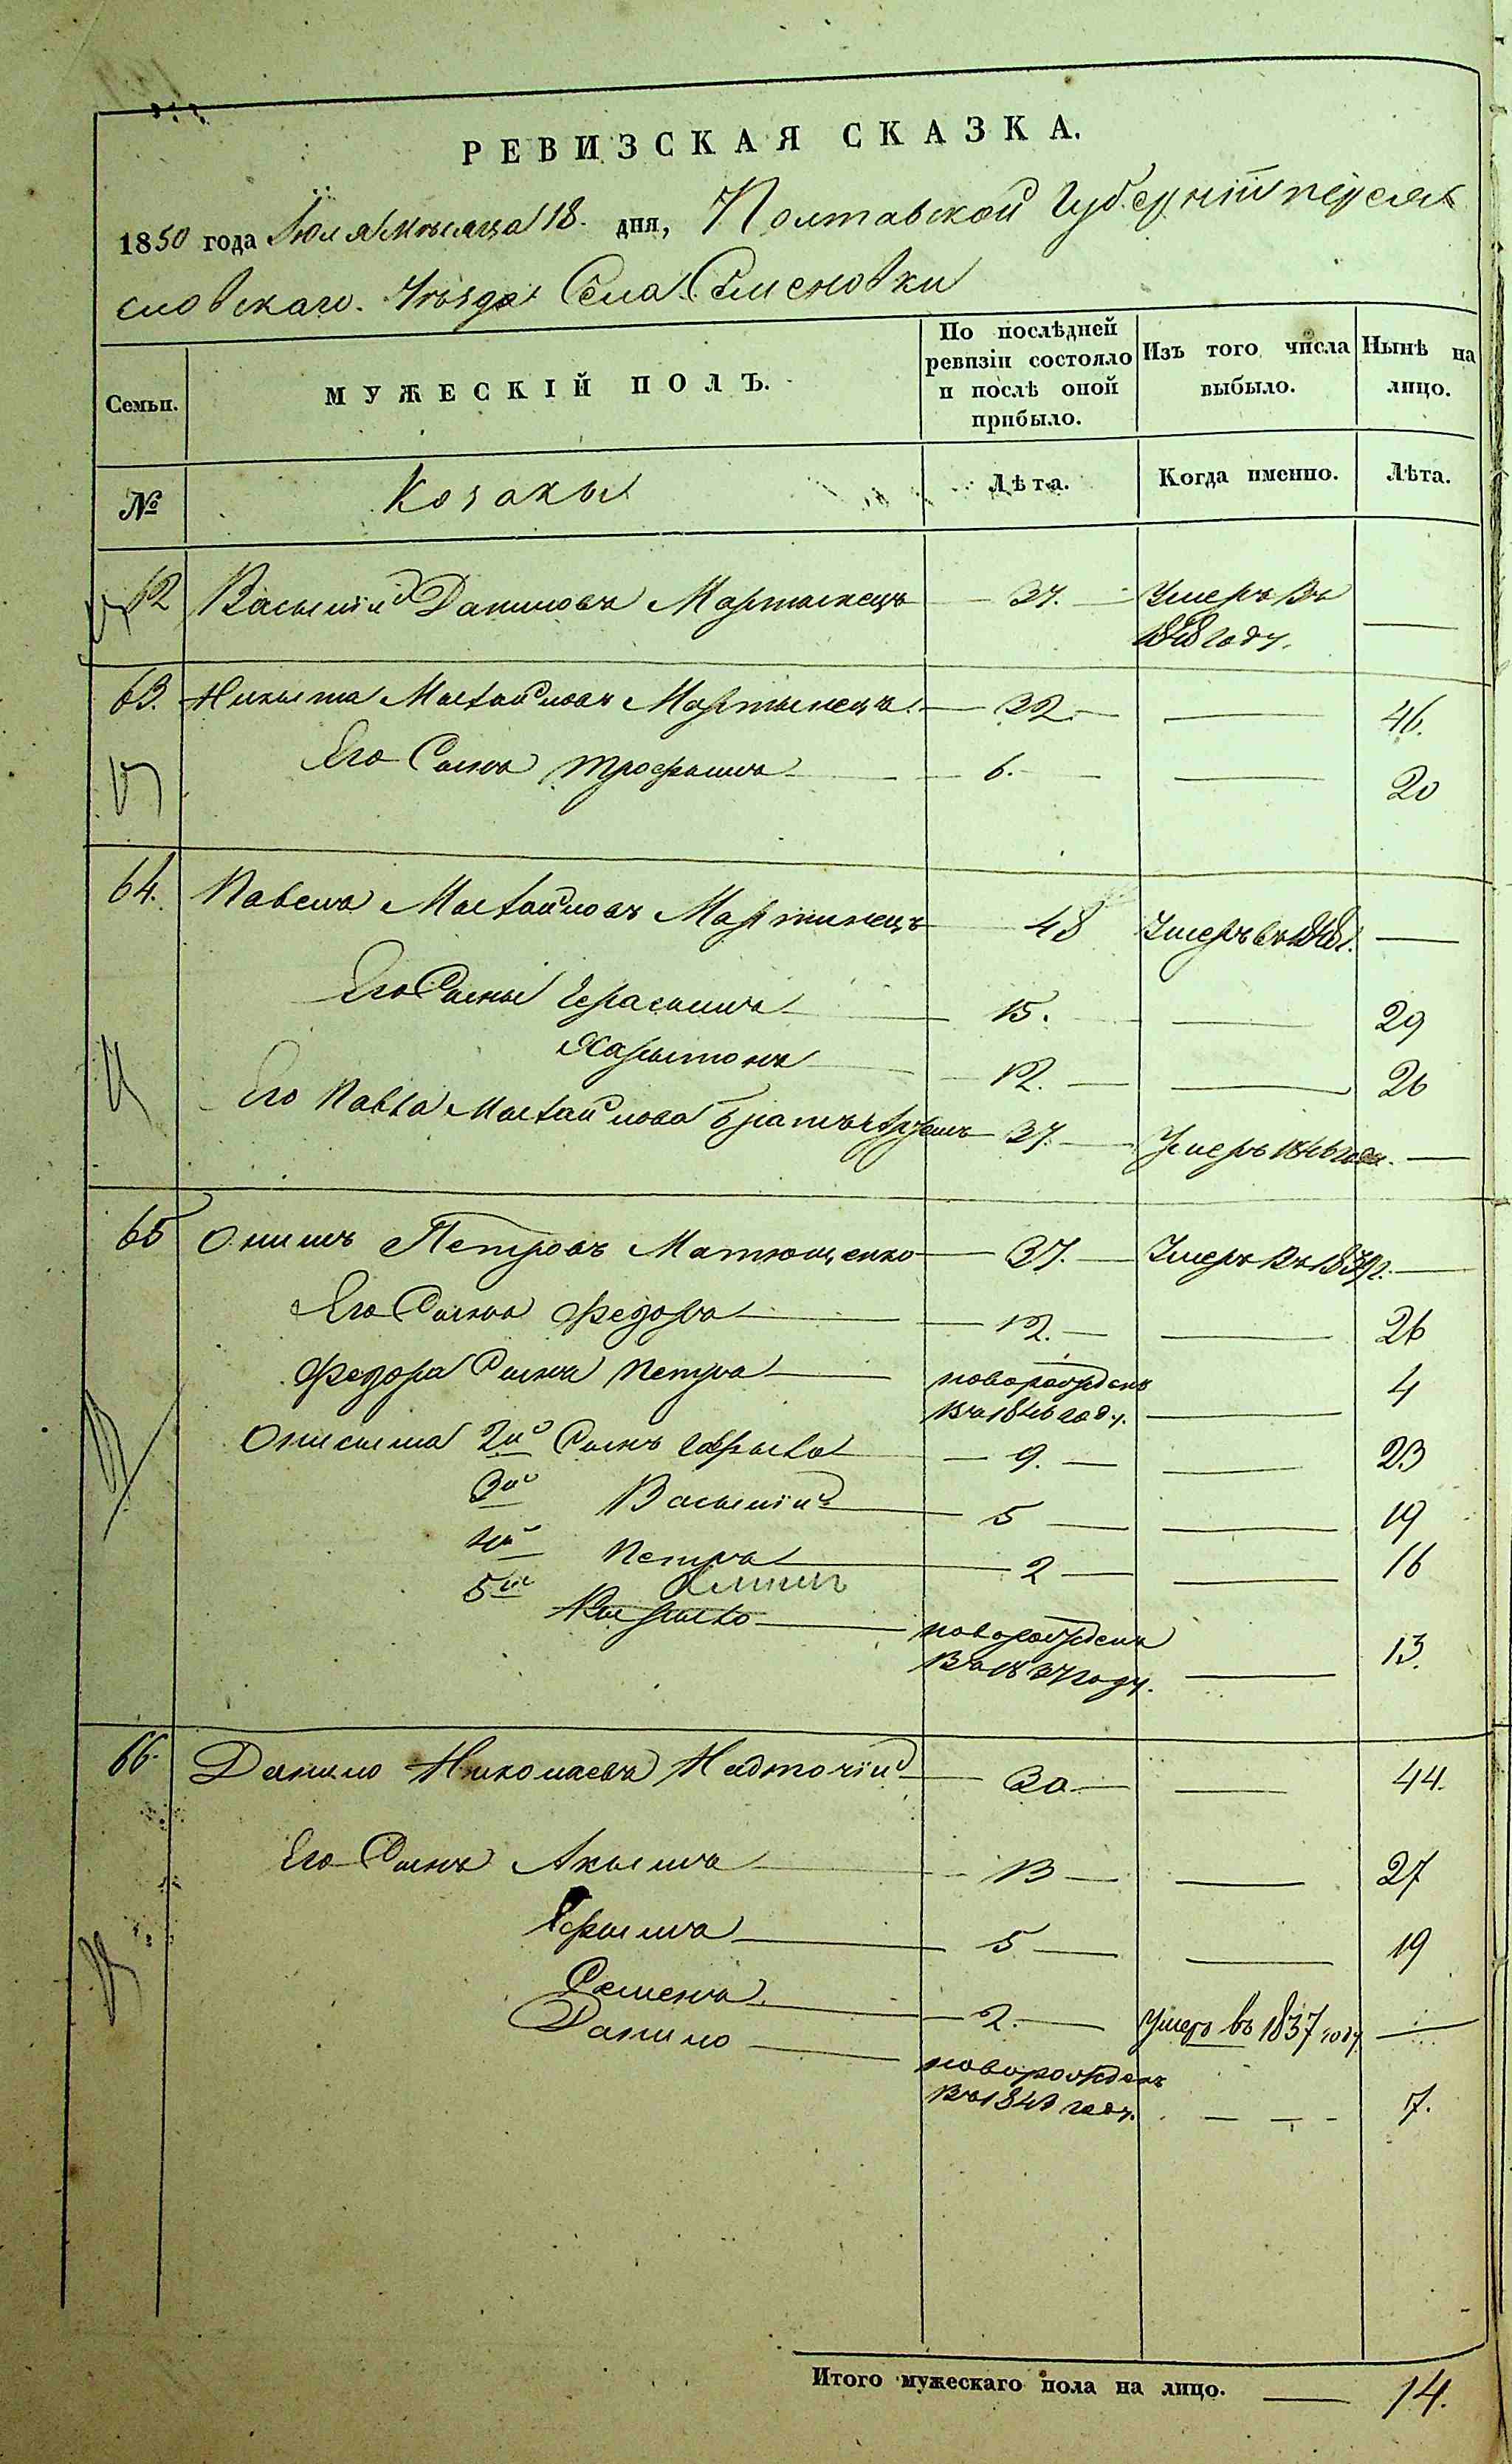 РЕВИЗСКАЯ СКАЗКА.
1850 года Июля месяца 18. дня, Полтавской Губерніи переяс
словскаго. Уѣзда Села Семеновки
Семьи.
МУЖЕСКІЙ ПОЛЪ.
По послѣдней ревизіи состояло и послѣ оной прибыло.
Изъ того числа выбыло.
Нынѣ на лицо.
№
Козакы
Лѣта.
Когда именно.
Лѣта.
62 Василій Даниловъ Мартынецъ 37. Умеръ въ
году.
63. Никыта Михайловъ Мартынецъ 32. 46.
Его Сынъ Трофымъ 6. 20
64. Павелъ Михайловъ Мартинецъ 48 Умеръ въ
Его Сыны Герасымъ 15. 29
Харытонъ 12. 26
Его Павла Михайлова братъ 37. Умеръ 1846 года.
65 Онисимъ Петровъ Матющенко 37. Умеръ въ 1839г.
Его Сынъ Федоръ 12. 26
Федора Сынъ Петръ новорожденъ 4
въ 1846 году.
Онисыма 2й Сынъ 9. 23
3й Васылій 5 19
4й Петръ 2 16
5й Кырыло новорожденъ 13.
въ 1837 году.
66. Данило Николаевъ Надточій 30 44.
Его Сынъ Акымъ 13 27
Ефымъ 5 19
Семенъ 2. Умеръ въ 1837 году
Данило новорожденъ 7.
въ 1843 году.
Итого мужескаго пола на лицо. 14.